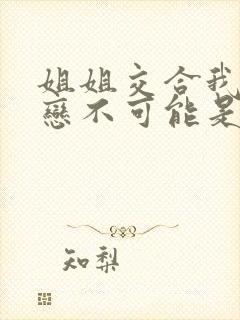 姐姐交合我
戀不可能是
知梨